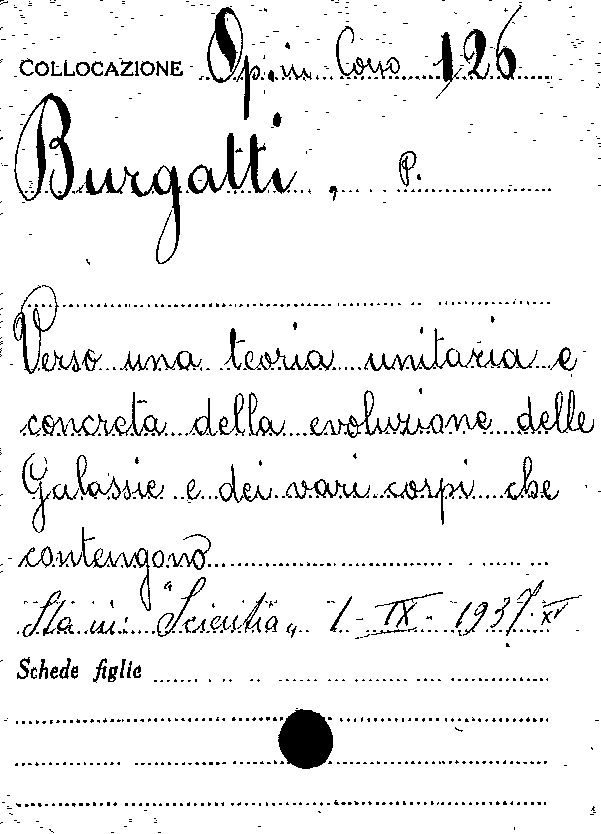 COLLOCAZIONE Op. in Corso 126
Burgatti, P.
Verso una teoria unitaria e
concreta della evoluzione delle
Galassie e dei vari corpi che
contengono
Sta in: "Scientia„ 1-IX-1937. XV
Schede figlie